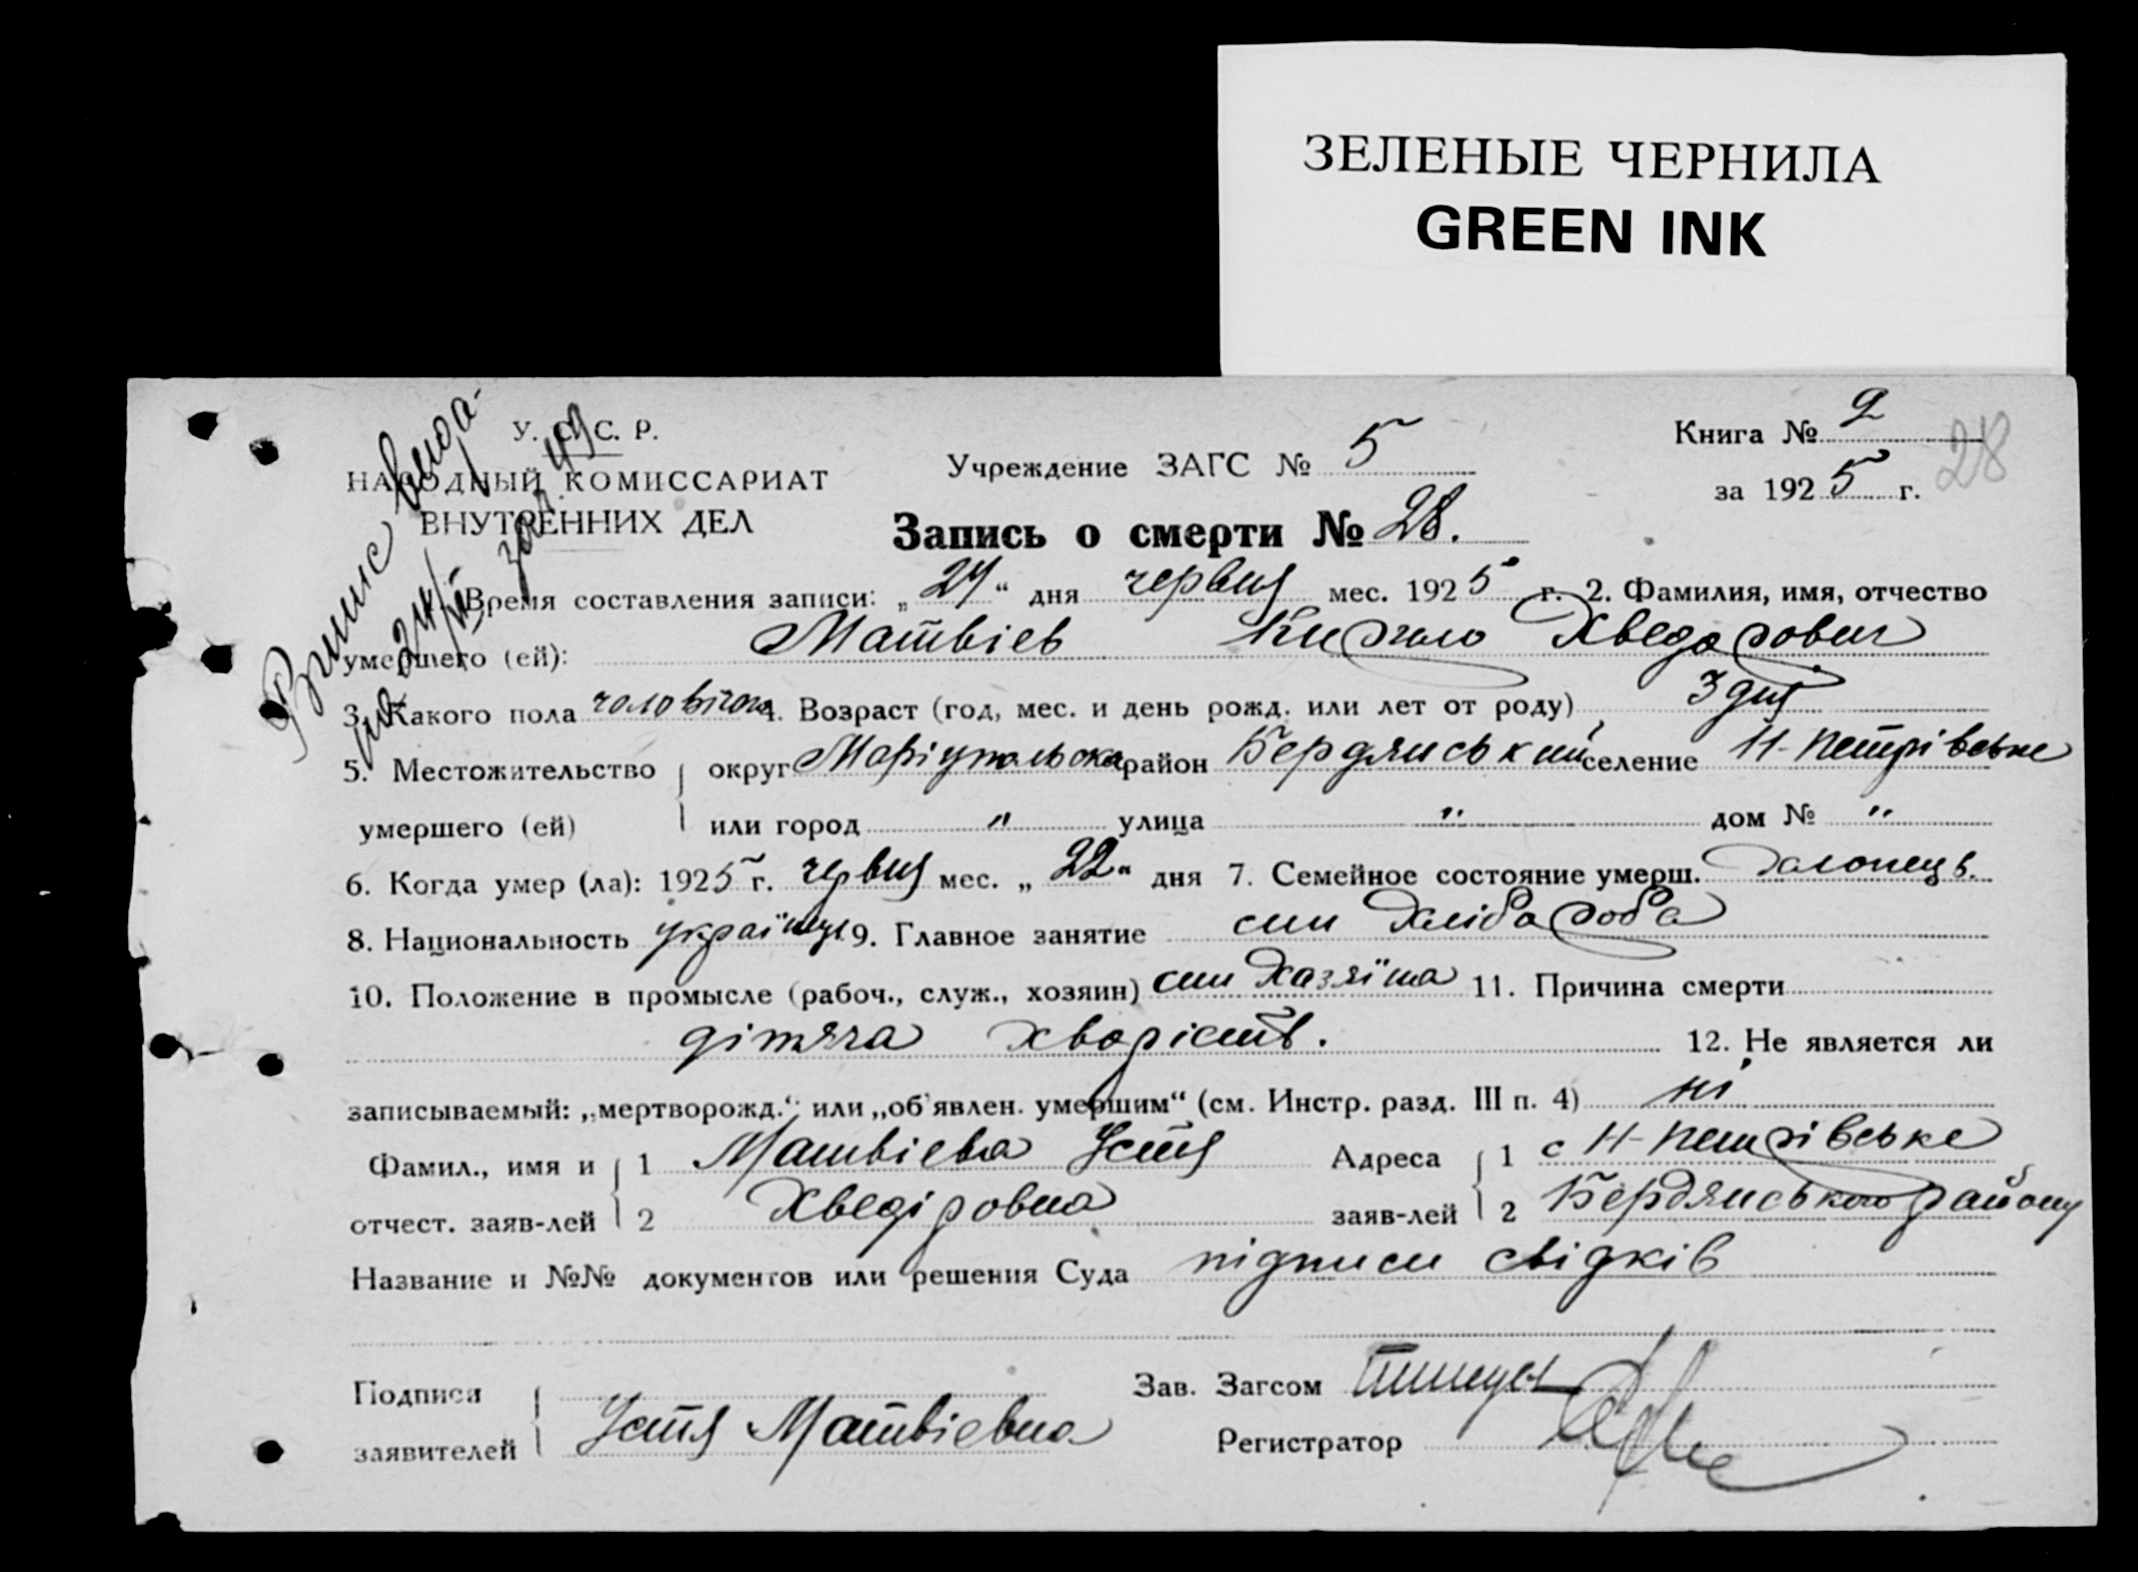 ЗЕЛЕНЫЕ ЧЕРНИЛА
GREEN INK
У. С. С. Р.
НАРОДНЫЙ КОМИССАРИАТ
ВНУТРЕННИХ ДЕЛ
Випис видана
24/
Учреждение ЗАГС № 5
Книга № 2
за 1925 г.
28
Запись о смерти № 28.
1. Время составления записи: „24“ дня червня мес. 1925 г. 2. Фамилия, имя, отчество
умершего (ей): Матвіев Кирило Хведорович
3. Какого пола чоловічого 4. Возраст (год, мес. и день рожд. или лет от роду) 3 дні
5. Местожительство округ Маріупольска район Бердянський селение Н-Петрівське
умершего (ей) или город " улица " дом № "
6. Когда умер (ла): 1925 г. червня мес. „22“ дня 7. Семейное состояние умерш. Хлопець.
8. Национальность українець 9. Главное занятие син Хлібороба
10. Положение в промысле (рабоч., служ., хозяин) син Хазяїна 11. Причина смерти
дітяча хворість. 12. Не является ли
записываемый: „мертворожд.“ или „об'явлен. умершим“ (см. Инстр. разд. III п. 4) ні
Фамил., имя и 1 Матвіева Устя Адреса 1 с Н-Петрівське
отчест. заяв-лей 2 Хведіровна заяв-лей 2 Бердянського району
Название и №№ документов или решения Суда підписи свідків
Подписи Зав. Загсом
заявителей Устя Матвіевна Регистратор